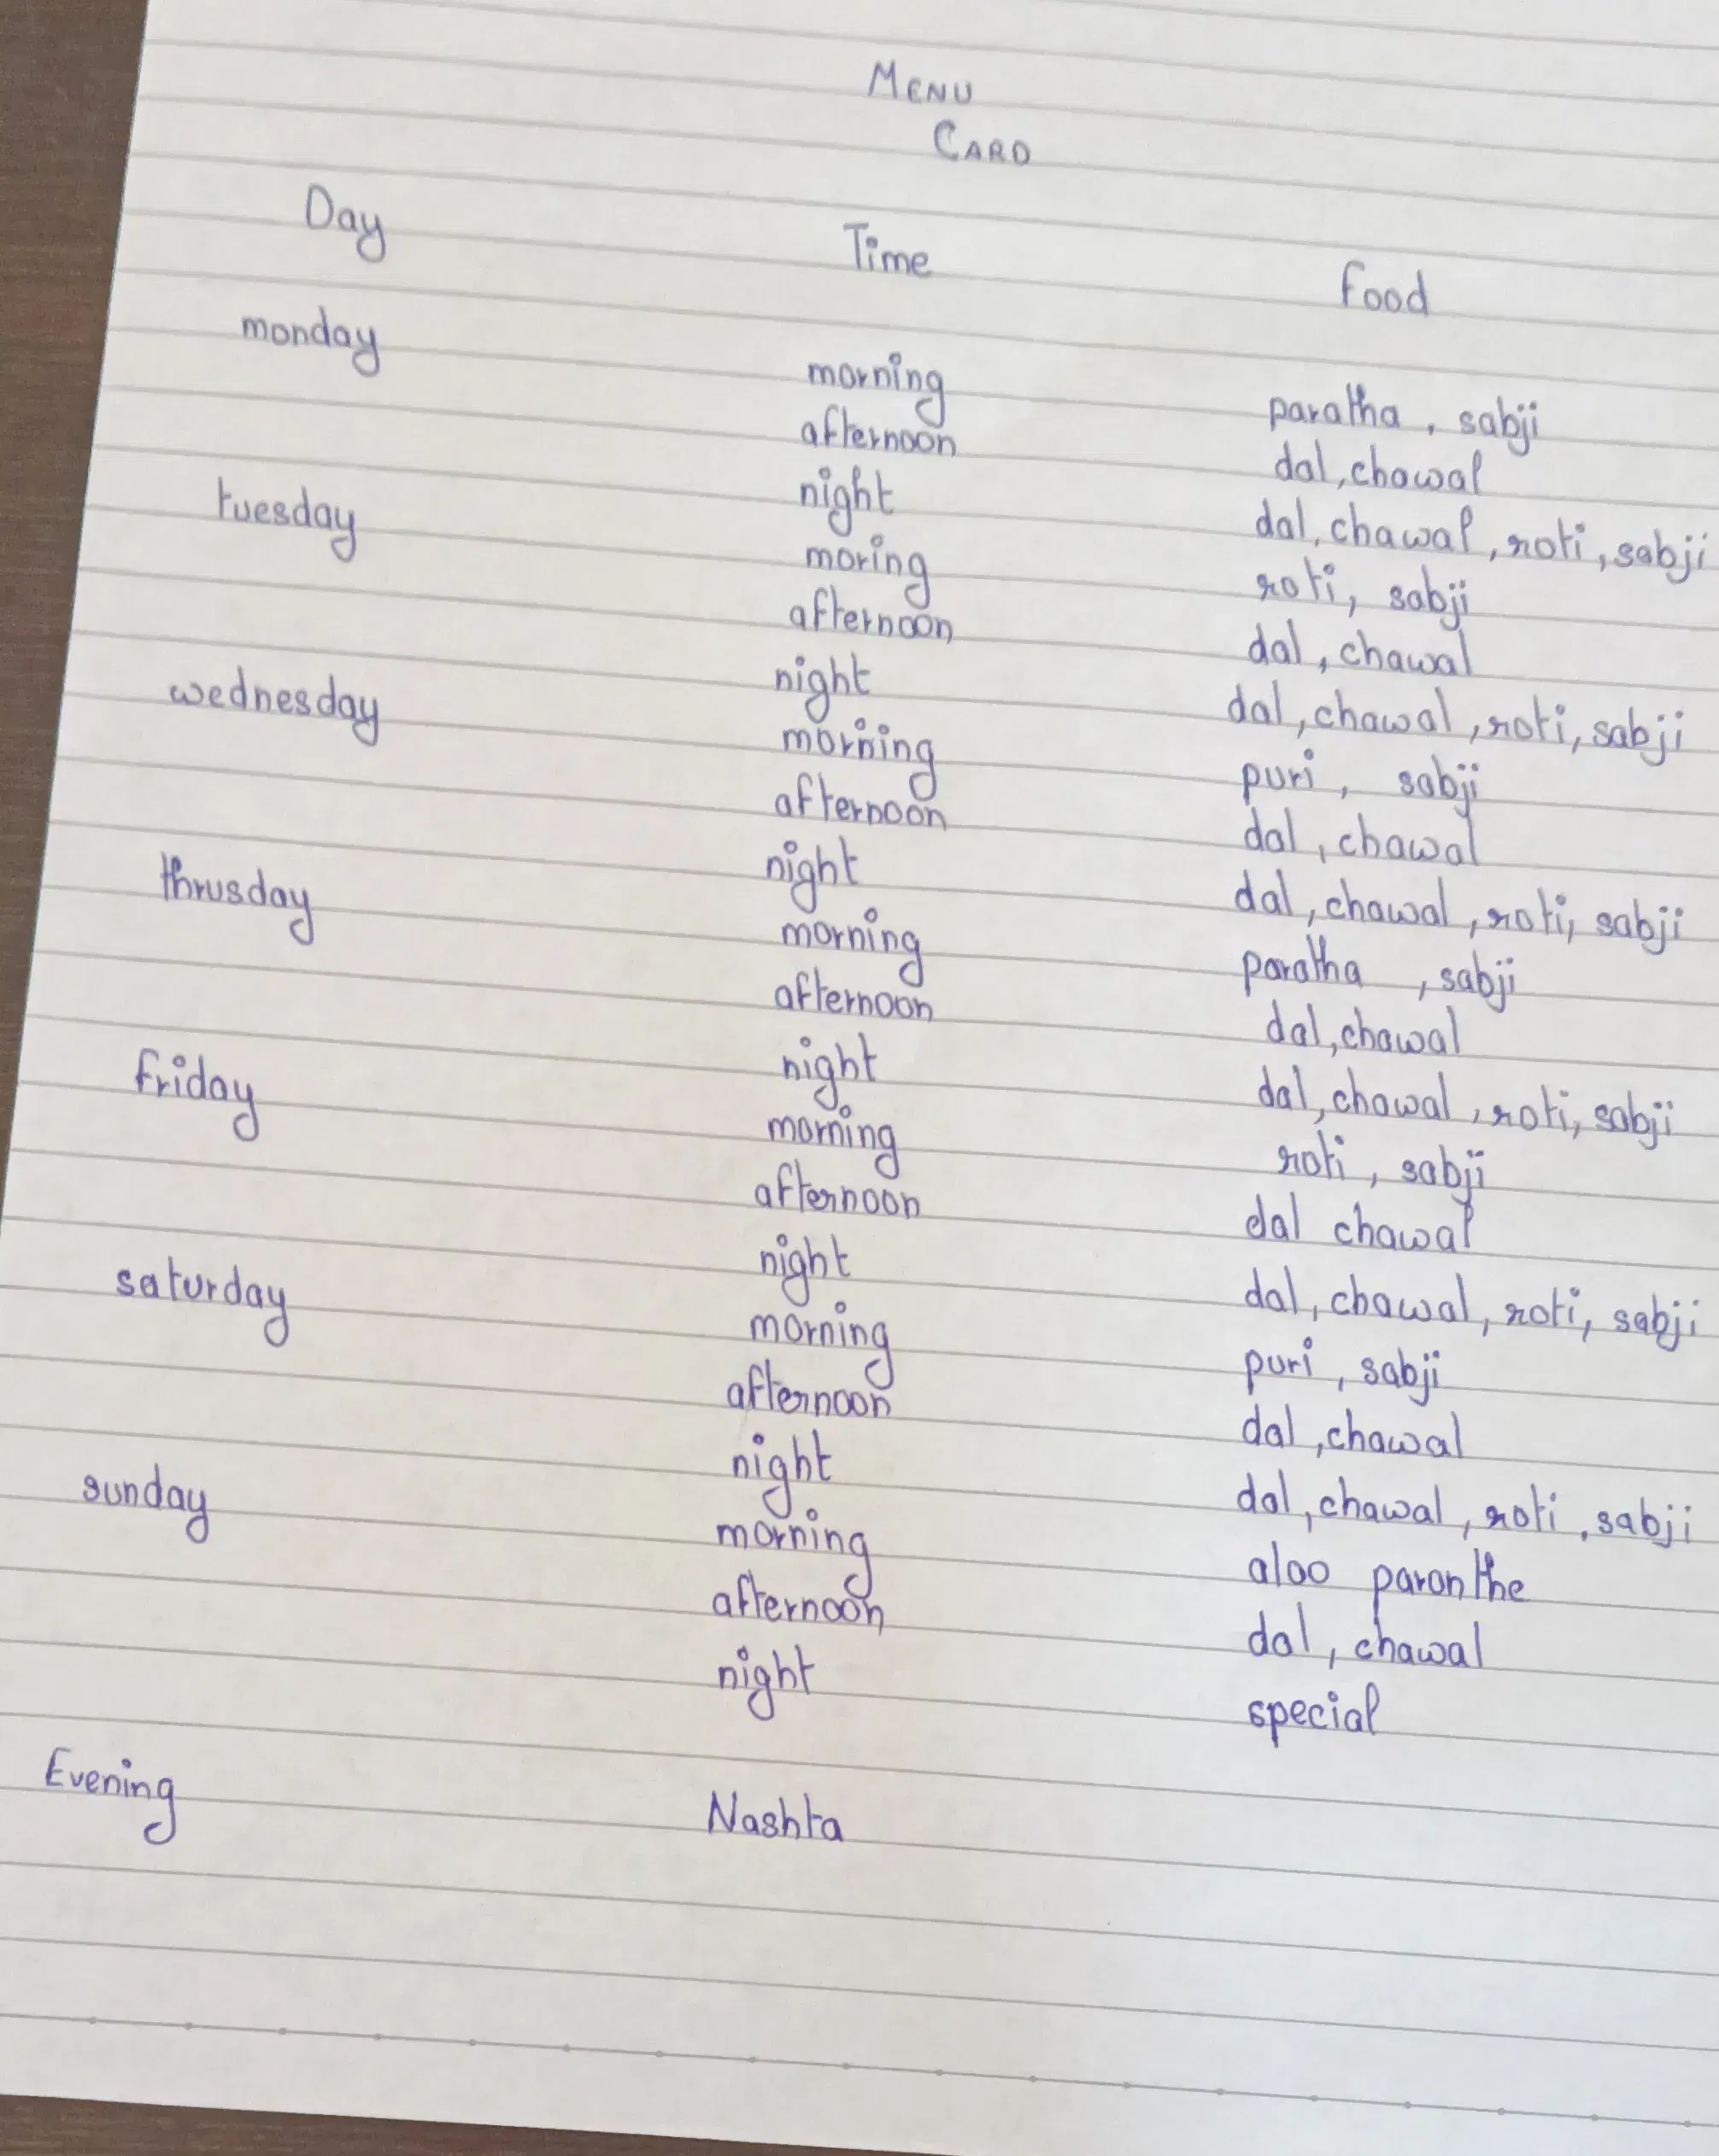 MENU
CARD
Day Time Food
monday morning paratha, sabji
afternoon dal, chawal
night dal, chawal, roti, sabji
tuesday moring roti, sabji
afternoon dal, chawal
night dal, chawal, roti, sabji
wednesday morning puri, sabji
afternoon dal, chawal
night dal, chawal, roti, sabji
thrusday morning paratha, sabji
afternoon dal, chawal
night dal, chawal, roti, sabji
friday morning roti, sabji
afternoon dal chawal
night dal, chawal, roti, sabji
saturday morning puri, sabji
afternoon dal, chawal
night dal, chawal, roti, sabji
sunday morning aloo paronthe
afternoon dal, chawal
night special
Evening Nashta